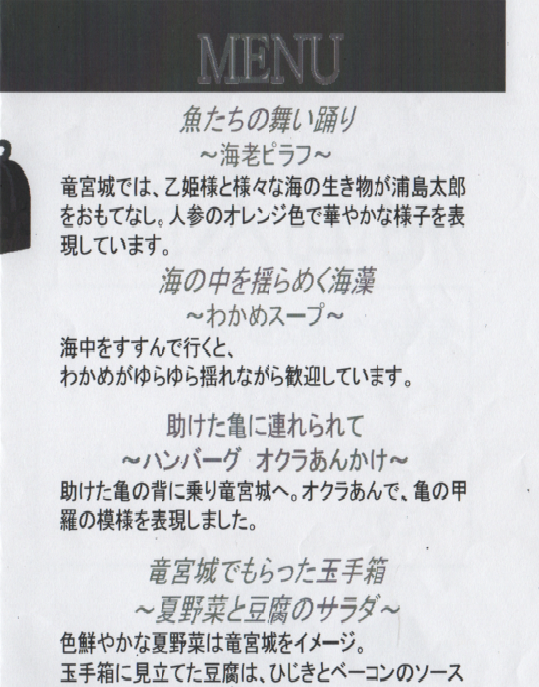 MENU
魚たちの舞い踊り
～海老ピラフ～
竜宮城では、乙姫様と様々な海の生き物が浦島太郎
をおもてなし。人参のオレンジ色で華やかな様子を表
現しています。
海の中を揺らめく海藻
～わかめスープ～
海中をすすんで行くと、
わかめがゆらゆら揺れながら歓迎しています。
助けた亀に連れられて
～ハンバーグ オクラあんかけ～
助けた亀の背に乗り竜宮城へ。オクラあんで、亀の甲
羅の模様を表現しました。
竜宮城でもらった玉手箱
～夏野菜と豆腐のサラダ～
色鮮やかな夏野菜は竜宮城をイメージ。
玉手箱に見立てた豆腐は、ひじきとベーコンのソース